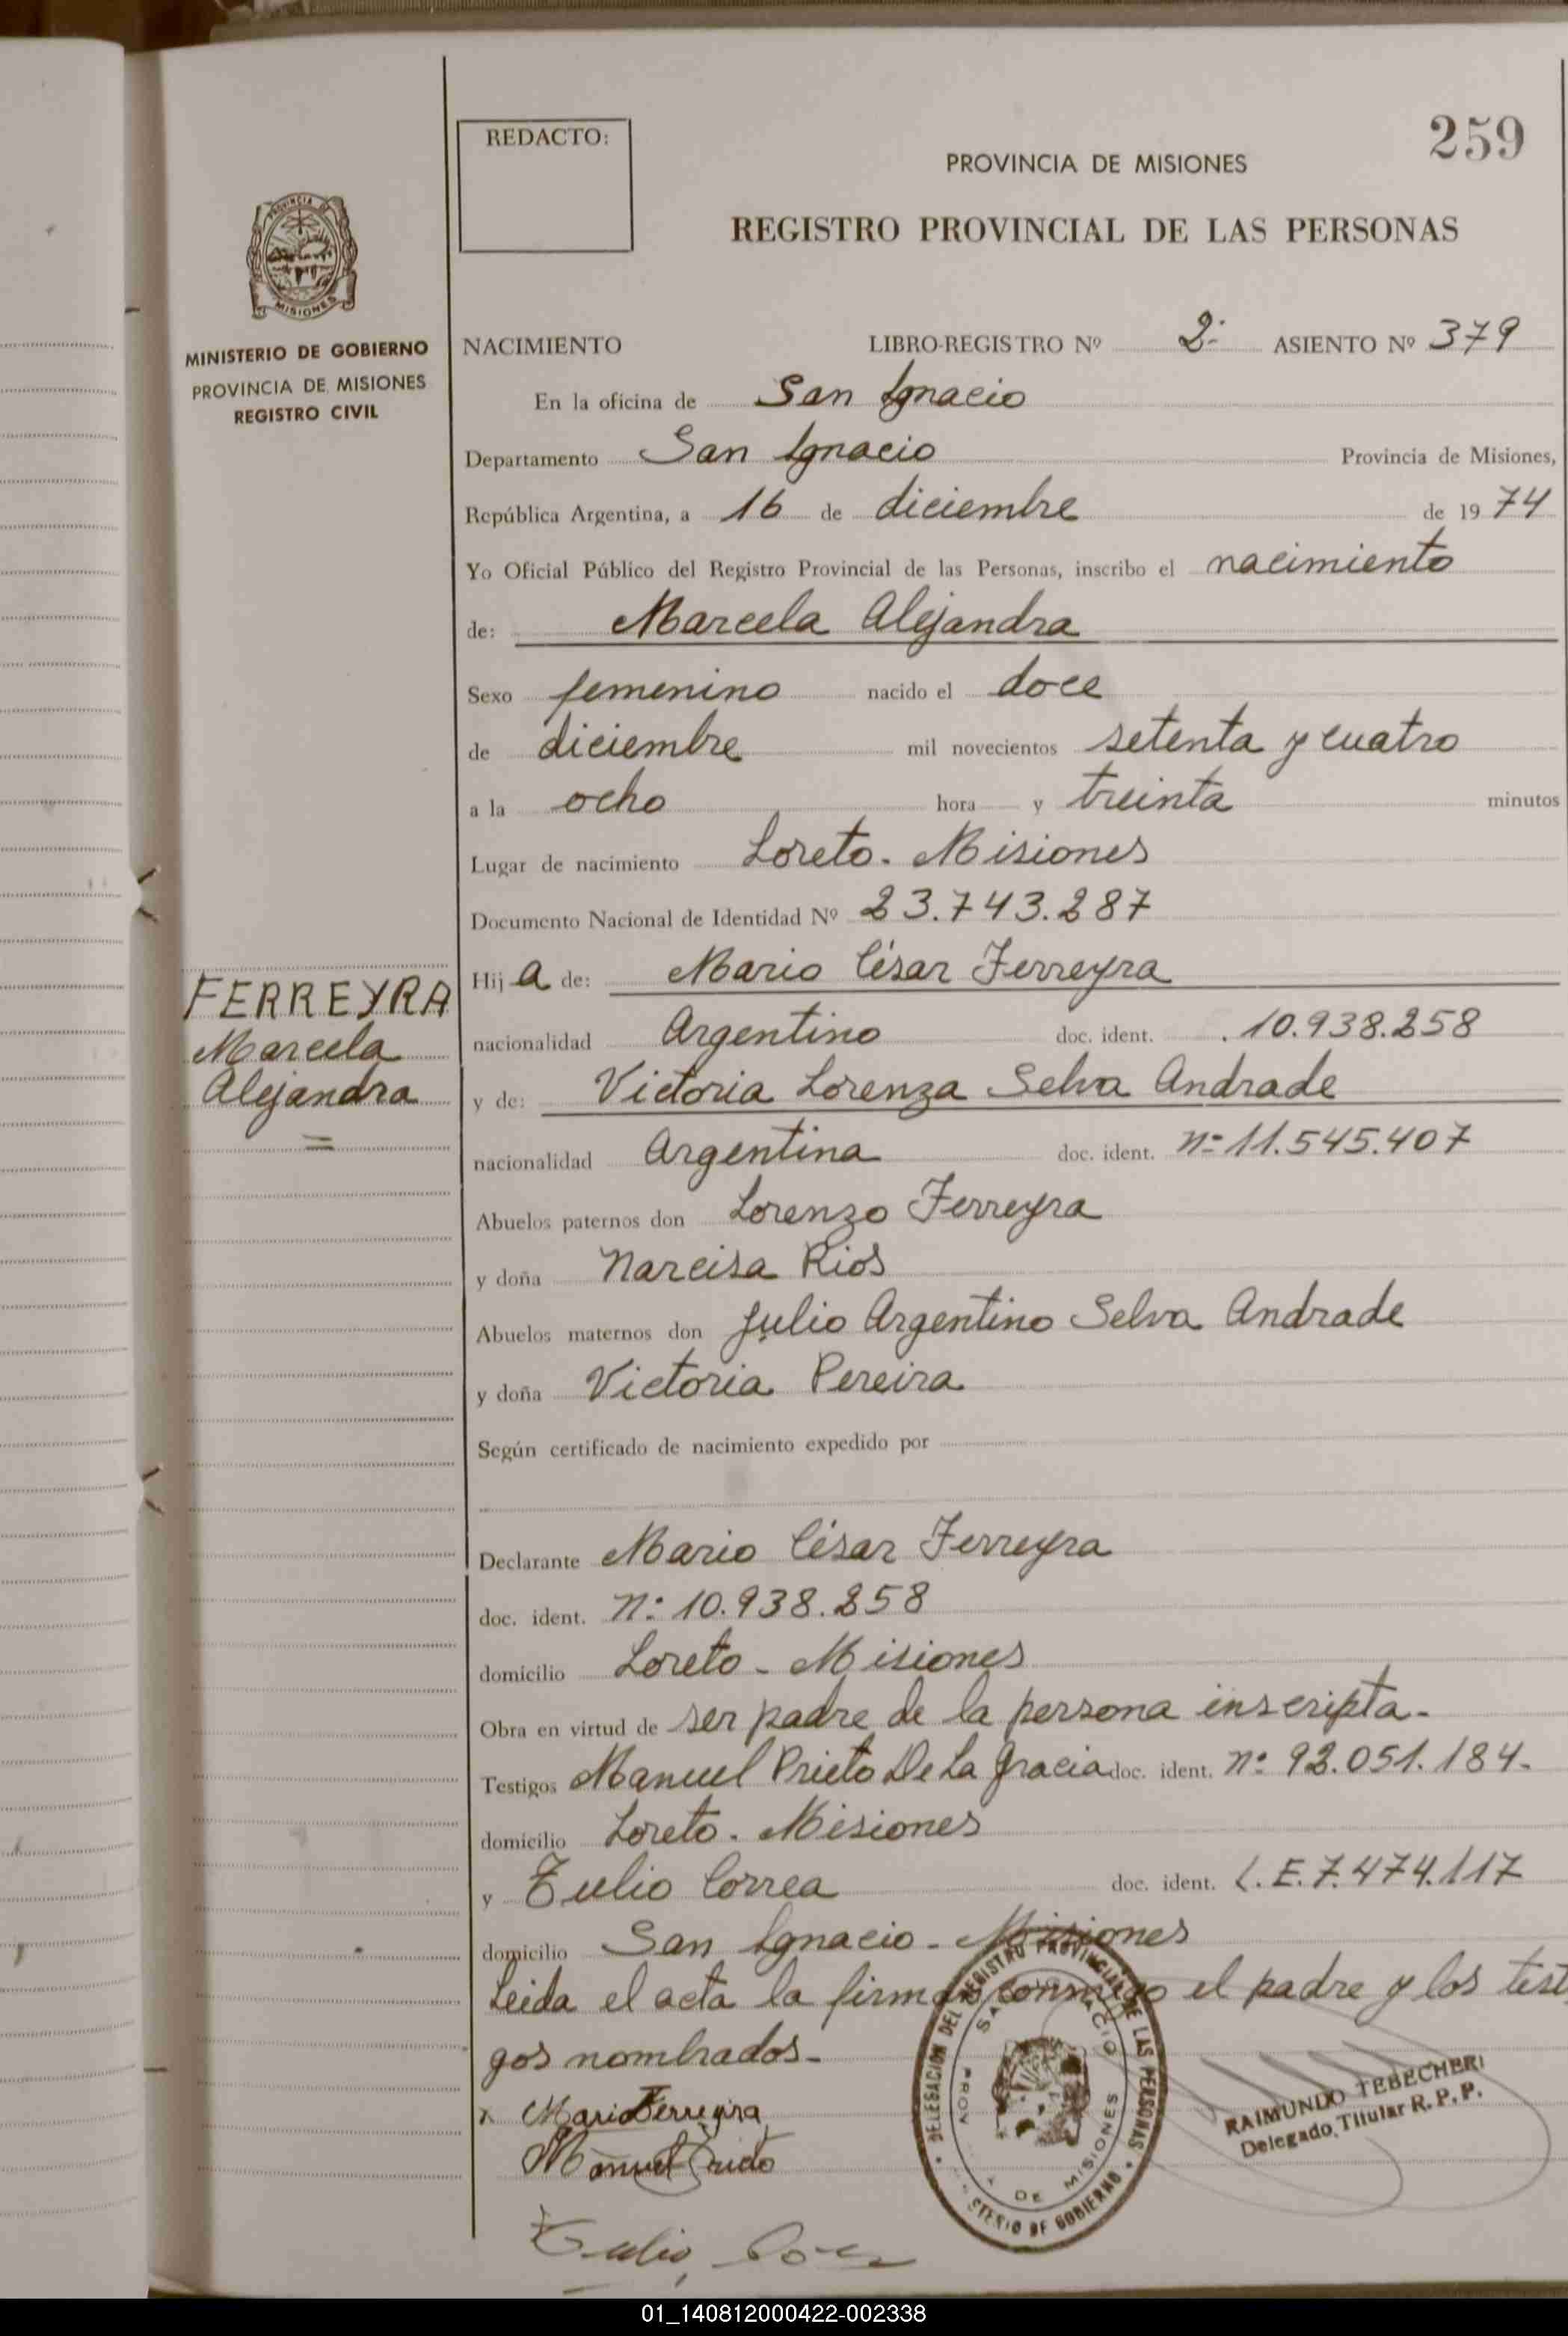 259
REDACTO:
PROVINCIA DE MISIONES
REGISTRO PROVINCIAL DE LAS PERSONAS
PROVINCIA DE
MISIONES
MINISTERIO DE GOBIERNO
PROVINCIA DE MISIONES
REGISTRO CIVIL
NACIMIENTO LIBRO-REGISTRO Nº 2º ASIENTO Nº 379
En la oficina de San Ignacio
Departamento San Ignacio Provincia de Misiones,
República Argentina, a 16 de diciembre de 19 74
Yo Oficial Público del Registro Provincial de las Personas, inscribo el nacimiento
de: Marcela Alejandra
Sexo femenino nacido el doce
de diciembre mil novecientos setenta y cuatro
a la ocho hora y treinta minutos
Lugar de nacimiento Loreto - Misiones
Documento Nacional de Identidad Nº 23.743.287
Hij a de: Mario César Ferreyra
FERREYRA
Marcela
Alejandra
=
nacionalidad Argentino doc. ident. . 10.938.258
y de: Victoria Lorenza Selva Andrade
nacionalidad Argentina doc. ident. nº 11.545.407
Abuelos paternos don Lorenzo Ferreyra
y doña Narcisa Rios
Abuelos maternos don Julio Argentino Selva Andrade
y doña Victoria Pereira
Según certificado de nacimiento expedido por
Declarante Mario César Ferreyra
doc. ident. Nº 10.938.258
domicilio Loreto - Misiones
Obra en virtud de ser padre de la persona inscripta.-
Testigos Manuel Prieto De La Gracia doc. ident. nº 92.051.184.
domicilio Loreto - Misiones
y Tulio Correa doc. ident. L.E.7.474.117
domicilio San Ignacio - Misiones
Leida el acta la firman conmigo el padre y los testi
gos nombrados.-
x Mario Ferreyra
Manuel Prieto
Tulio
DELEGACION DEL REGISTRO PROVINCIAL DE LAS PERSONAS
DE GOBIERNO
DE MISIONES
RAIMUNDO TEBECHERI
Delegado Titular R. P. P.
01_140812000422-002338